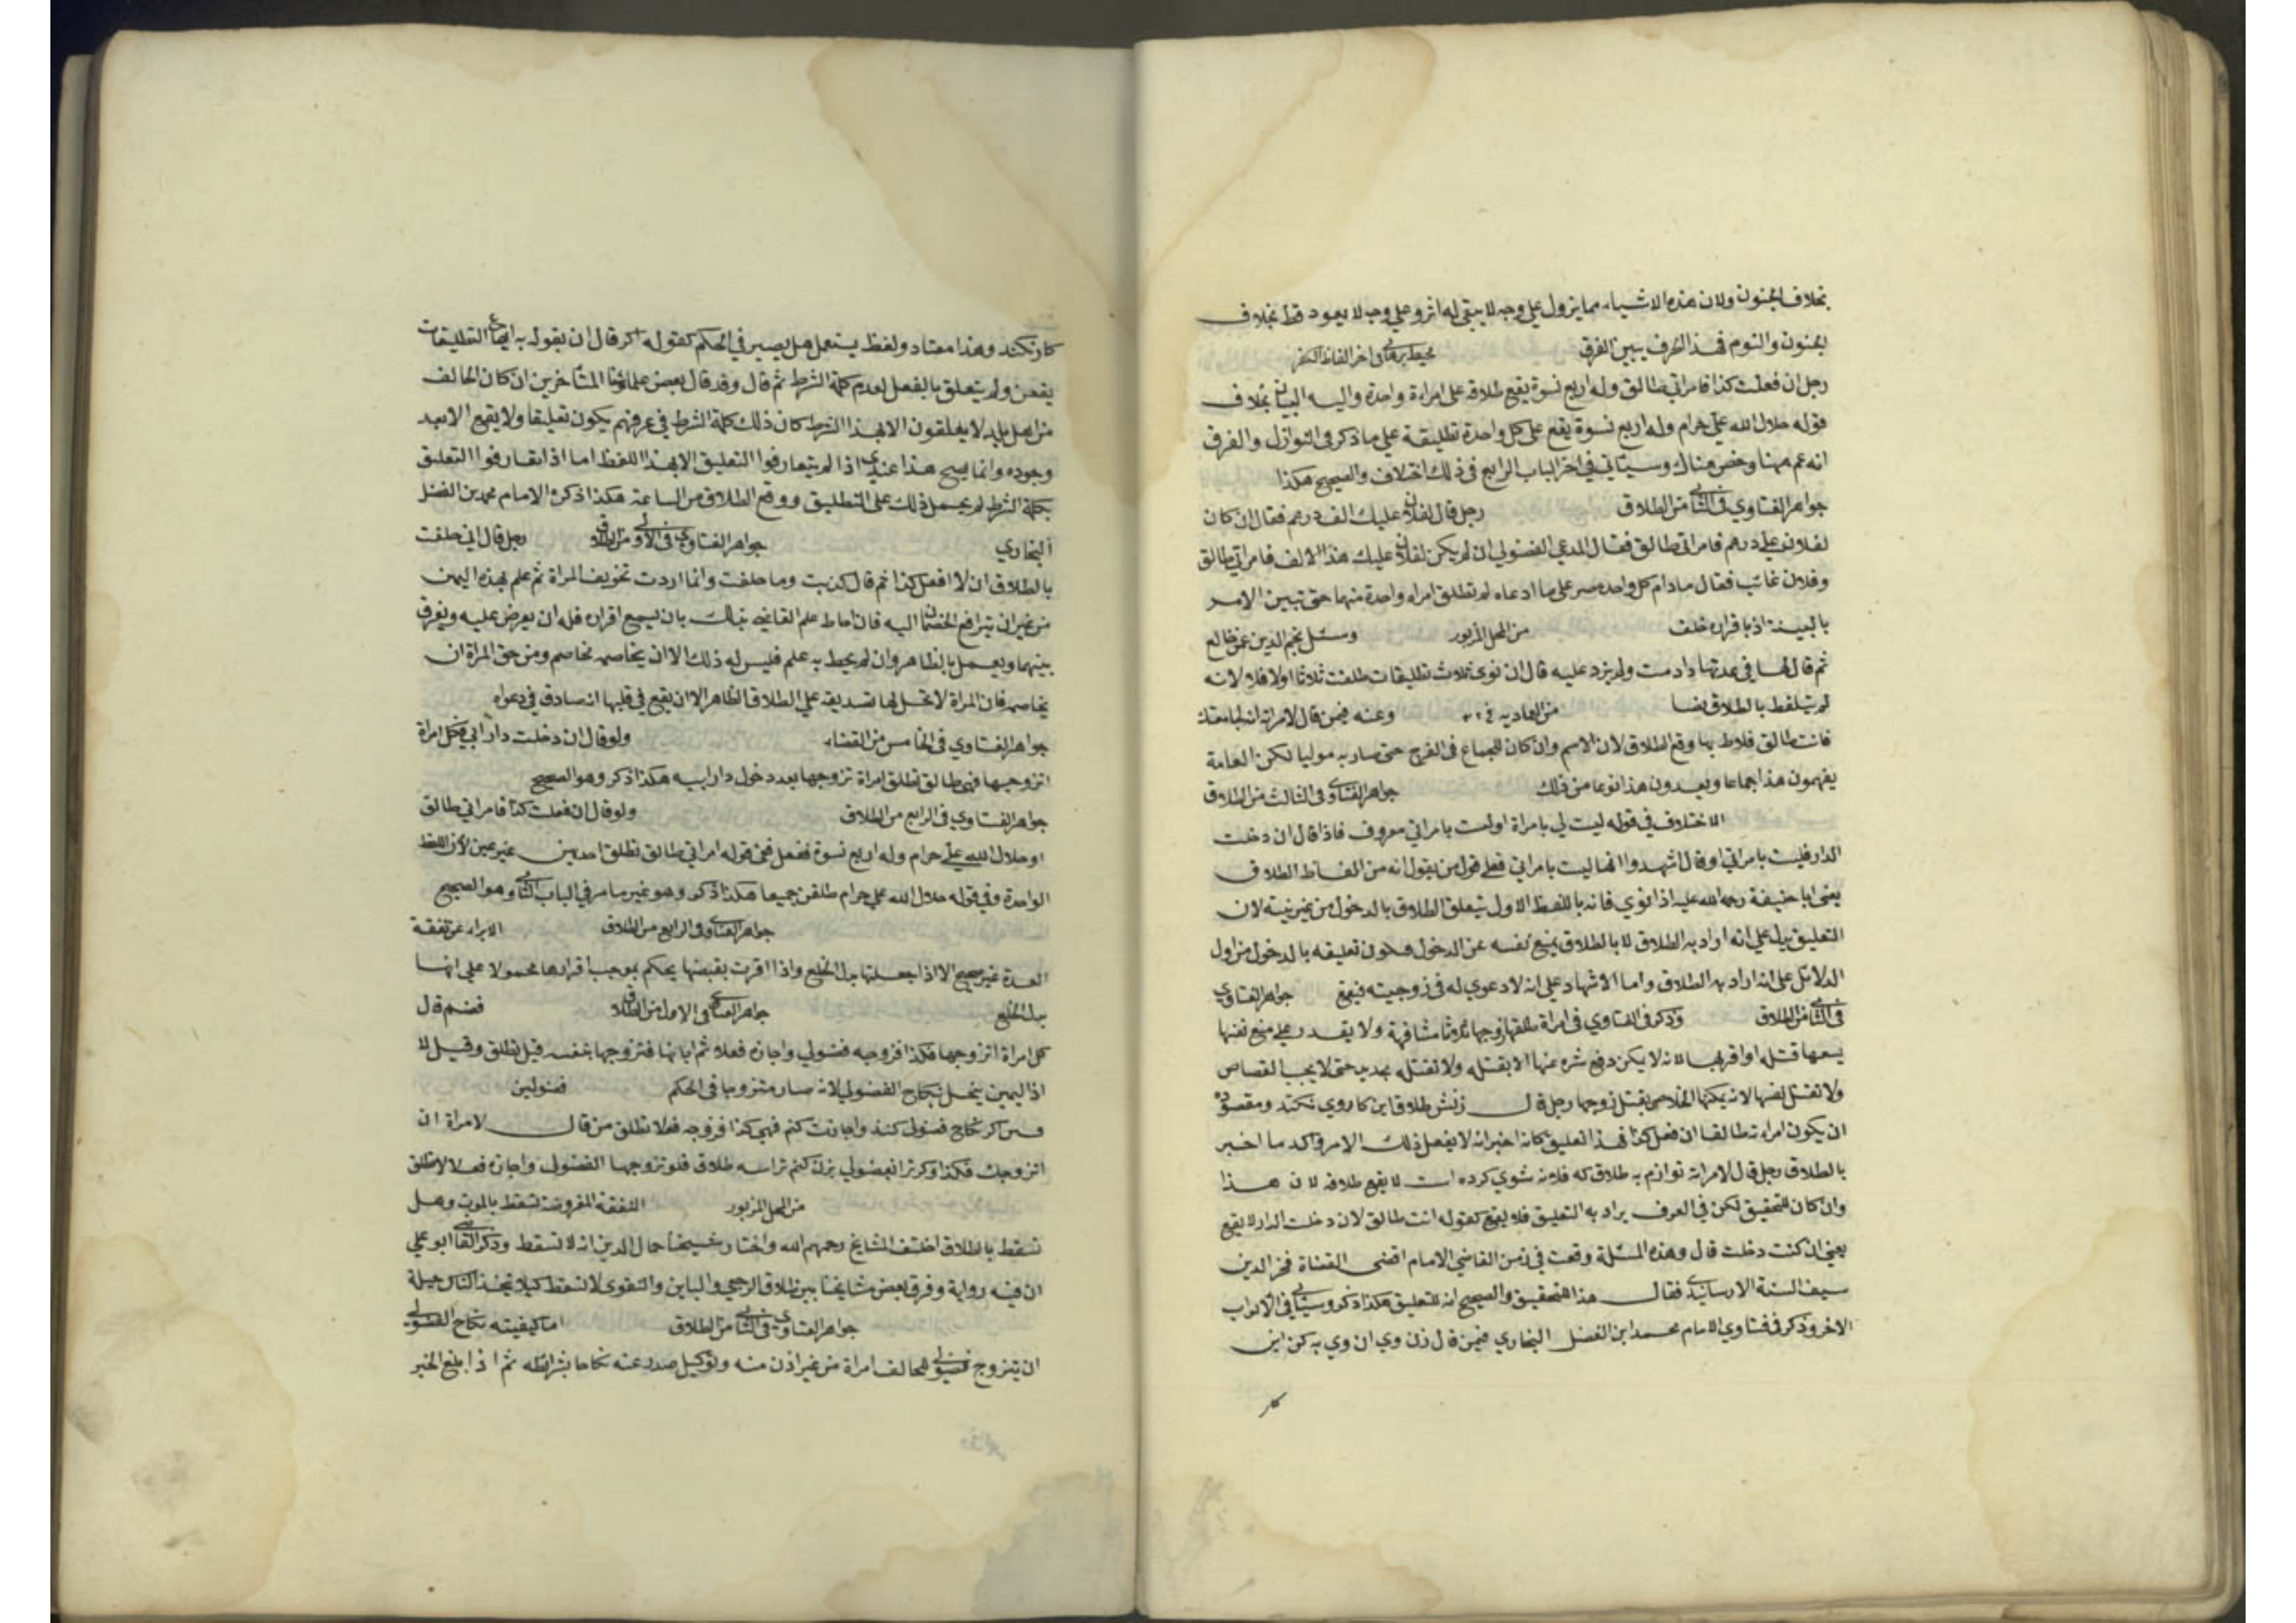 بخلاف الجنون ولان هذه الاشياء مما يزول علي وجه لا يبقي له اثر وعلي وجه لا يعود قط بخلاف
الجنون والنوم فهذا الحرف يبين الفرق محيط برهاني في اخر الفاظ الكفر
رجل ان فعلت كذا فامراتي طالق وله اربع نسوة يقع طلاقه علي امراة واحدة واليه البيان بخلاف
قوله حلال الله علي حرام وله اربع نسوة يقع علي كل واحدة تطليقة علي ما ذكر في النوازل والفرق
انه عم ههنا وخص هناك وسياتي في اخر الباب الرابع في ذلك اختلاف والصحيح هكذا
جواهر الفتاوي في الثاني من الطلاق رجل قال لفلان عليك الف درهم فقال ان كان
لفلان علي درهم فامراتي طالق فقال المدعي الفضولي ان لم يكن لفلان عليك هذا الالف فامراتي طالق
وفلان غائب فقال مادام كل واحد مصر علي ما ادعاه لم تطلق امراه واحدة منهما حتي تبين الامر
بالبينة اذ باقراره خلف من المحل المزبور وسئل نجم الدين عمن خالع
ثم قال لها في عدتها دادمت ولم يزد عليه قال ان نوي ثلاث تطليقات طلقت ثلاثا اولا فلا لانه
لم يتلفظ بالطلاق نصا من العماديه في ٢٢ وعنه فيمن قال لامراته ان جامعتك
فانت طالق فلاط بها وقع الطلاق لان الاسم وان كان للجماع في الفرج حتي صار به موليا لكن العامة
يفهمون هذا جماعا ويعدون هذا نوعا من ذلك جواهر الفتاوي في الثالث من الطلاق
الاختلاف في قوله ليست لي بامراة او لست بامراتي معروف فاذا قال ان دخلت
الدار فليست بامراتي او قال اشهدوا انها ليست بامراتي فعلي قول من يقول انه من الفاظ الطلاق
يعني ابا حنيفة رحمة الله عليه اذا نوي فانه باللفظ الاول يتعلق الطلاق بالدخول من غير نية لان
التعليق يدل علي انه اراد به الطلاق لا بالطلاق يمنع نفسه عن الدخول فيكون تعليقه بالدخول من اول
الدلائل علي انه اراد به الطلاق واما الاشهاد علي انه لا دعوي له في زوجيته فيقع جواهر الفتاوي
في الثاني من الطلاق وذكر في الفتاوي في امراة طلقها زوجها ثلاثا مشافهة ولا يقدر علي منع نفسها
يسعها قتله او اقربها لانه لا يمكن دفع شره عنها الا بقتله ولا تقتله بحديد حتي لا يجب القصاص
ولا تقتل نفسها لانه يمكنها الخلاص بقتل زوجها رجل قال زنش طلاق اين كار وي نكند ومقصوده
ان يكون امراته طالقا ان فعل كذا فهذا تعليق كانه اخبر انه لا يفعل ذلك الامر واكد ما اخبر
بالطلاق رجل قال لامراته تو ازم به طلاق كه فلانه شوي كرده است لا يقع طلاقه لان هذا
وان كان للتحقيق لكن في العرف يراد به التعليق فلا يقع كقوله انت طالق لان دخلت الدار لا يقع
يعني ان كنت دخلت قال وهذه المسئلة وقعت في زمن القاضي الامام اقضي القضاة فخر الدين
سيف السنة الارسابندي فقال هذا للتحقيق والصحيح انه للتعليق هكذا ذكر وسياتي في الابواب
الاخر وذكر في فتاوي الامام محمد ابن الفضل البخاري فيمن قال زن وي ان وي به كن اين
كار
كار نكند وهذا معتاد ولفظ يستعمل هل يصير في الحكم كقوله اكر قال ان يقوله به ايقاع التطليقات
يقعن ولم يتعلق بالفعل لعدم كلمة الشرط ثم قال وقد قال بعض علمائنا المتاخرين ان كان الحالف
من اهل بلد لا يعلقون الا بهذا الشرط كان ذلك كلمة الشرط في عرفهم يكون تعليقا ولا يقع الا بعد
وجوده وانما يصح هذا عندي اذا لم يتعارفوا التعليق الا بهذا اللفظ اما اذا تعارفوا التعليق
بكلمة الشرط لم يحمل ذلك علي التطليق ووقع الطلاق من الساعة هكذا ذكره الامام محمد بن الفضل
البخاري جواهر الفتاوي في الاول من الطلاق رجل قال اني حلفت
بالطلاق ان لا افعل كذا ثم قال كذبت وما حلفت وانما اردت تخويف المراة ثم علم بهذه اليمين
من غير ان يترافع الخصمان اليه فان احاط علم القاضي بذلك بان يسمع اقراره فله ان يعرض عليه ويفرق
بينهما ويعمل بالظاهر وان لم يحط به علم فليس له ذلك الا ان يخاصمه مخاصم ومن حق المراة ان
يخاصمه فان المراة لا تحل لها تصديقه علي الطلاق الظاهر الا ان يقع في قلبها انه صادق في دعواه
جواهر الفتاوي في الخامس من القضاء ولو قال ان دخلت دار ابي فكل امراة
اتزوجها فهي طالق تطلق امراة تزوجها بعد دخول دار ابيه هكذا ذكر وهو الصحيح
جواهر الفتاوي في الرابع من الطلاق ولو قال ان فعلت كذا فامراتي طالق
او حلال الله علي حرام وله اربع نسوة ففعل ففي قوله امراتي طالق تطلق احديهن غير عين لان اللفظ
الواحدة وفي قوله حلال الله علي حرام طلقن جميعا هكذا ذكر وهو غير ما مر في الباب الثاني وهو الصحيح
جواهر الفتاوي في الرابع من الطلاق الابراء عن نفقة
العدة غير صحيح الا اذا جعلتها بدل الخلع واذا اقرت بقبضها يحكم بموجب اقرارها محمولا علي انها
بدل الخلع جواهر الفتاوي في الاول من الطلاق قال
كل امراة اتزوجها فكذا فزوجه فضولي واجازه فعلا ثم ابانها فتزوجها بنفسه قيل تطلق وقيل لا
اذ اليمين ينحل بنكاح الفضولي لانه صار متزوجا في الحكم فصولين
نكاح فضولي كند واجازت كنم فهي كذا فزوجه فعلا تطلق من قال لامراة ان
اتزوجك فكذا وكر ترا بفضولي بزني كنم تراسه طلاق فلو تزوجها الفضولي واجازه فعلا لا تطلق
من المحل المزبور النفقة المفروضة تسقط بالموت وهل
تسقط بالطلاق اختلف المشايخ رحمهم الله واختار شيخنا جمال الدين انه لا تسقط وذكر القاضي ابو علي
ان فيه رواية وفرق بعض مشايخنا بين طلاق الرجعي والباين والفتوي لا تسقط كيلا يتخذ الناس حيلة
جواهر الفتاوي في الثاني من الطلاق اما كيفيته نكاح الفضولي
ان يتزوج فضولي للحالف امراة من غير اذن منه وتوكيل صدر عنه نكاحا بشرائطه ثم اذا بلغ الخبر